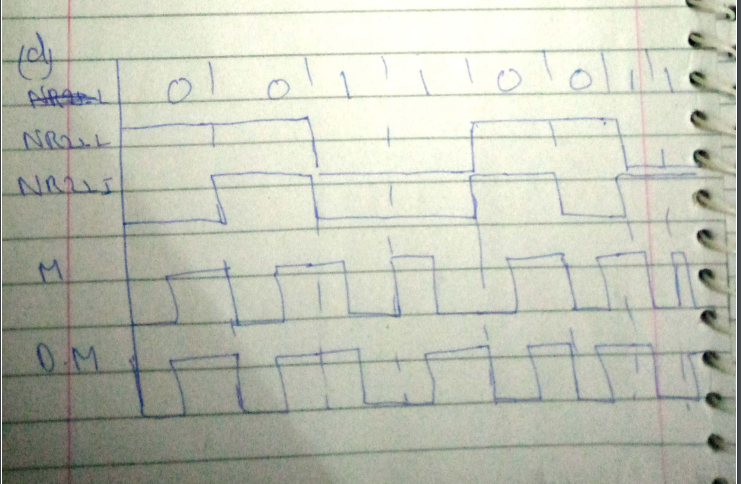 (d)
0 0 1 1 0 0 1 1
NRZ-L
NRZI
M
D.M